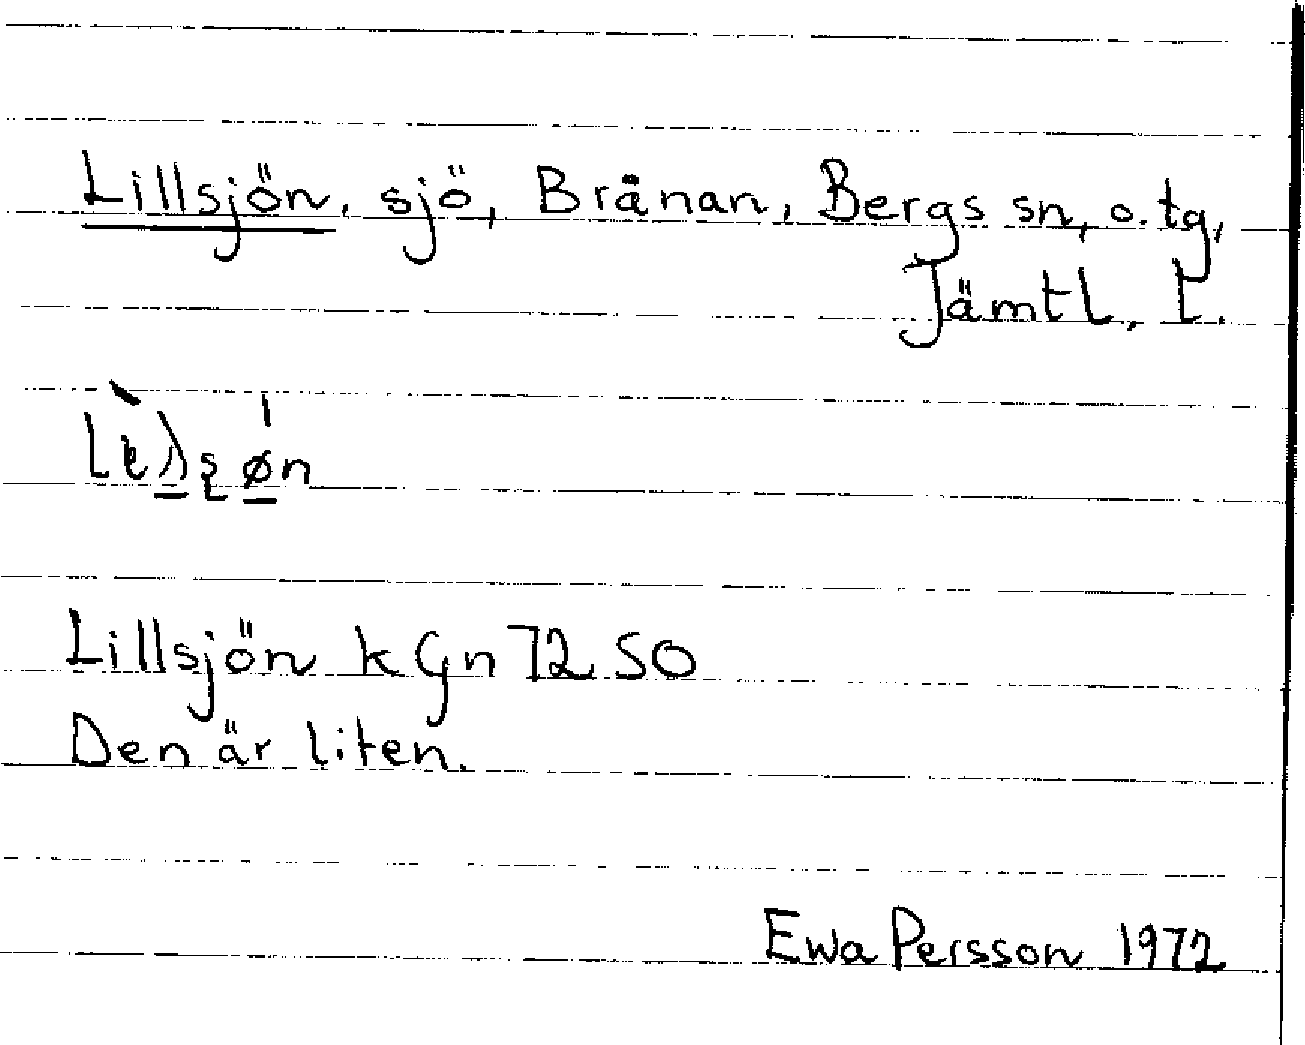 Lillsjön, sjö, Brånan, Bergs sn, o. tg,
Jämtl. l.
Lillsjön k Gn 72 SO
Den är liten.
Ewa Persson 1972